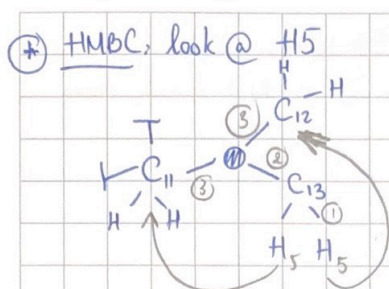 + HMBC, look @ H5
H
H
③ C12
C11 ③ ② C13
①
H H H5 H5